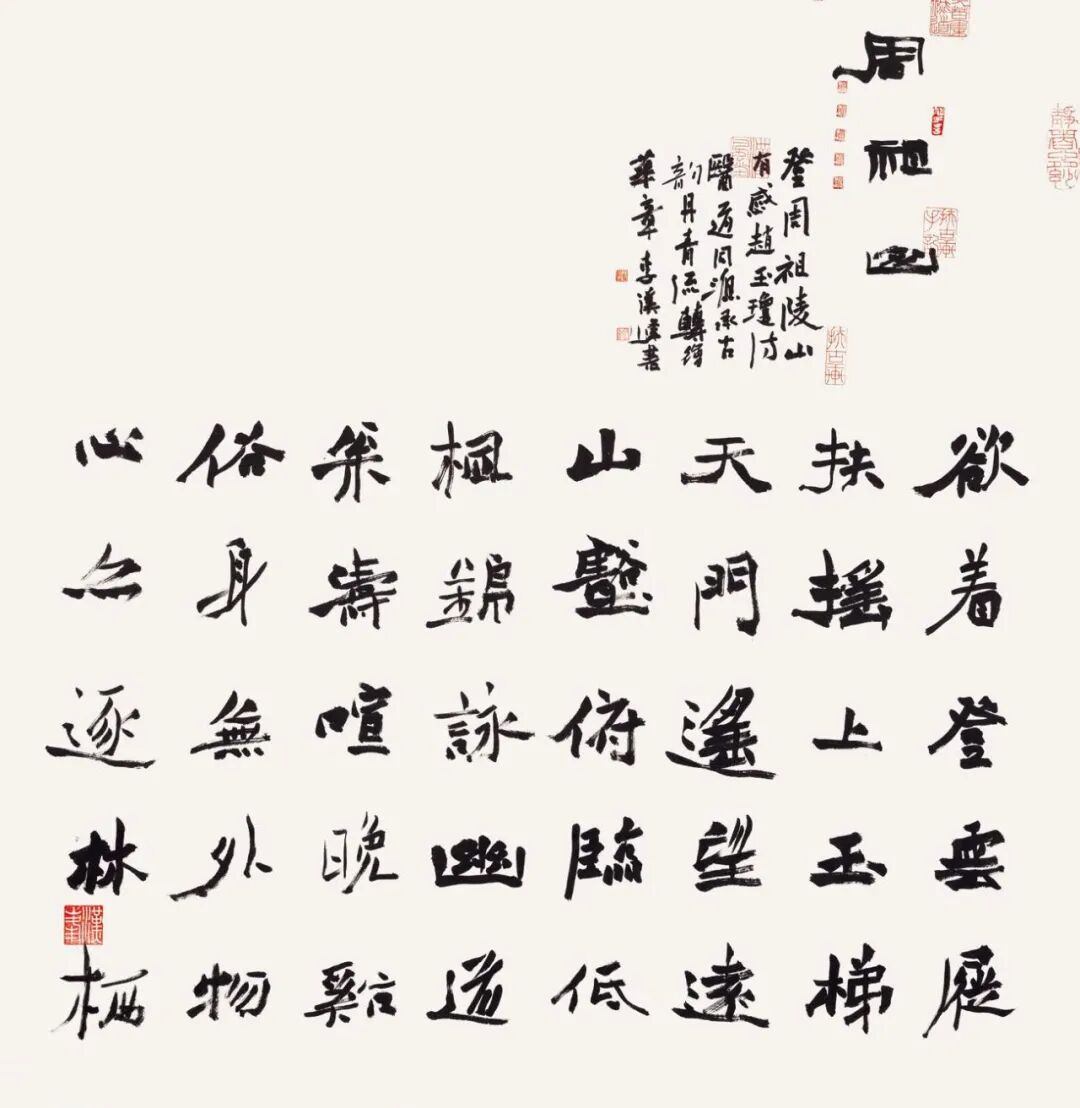 周祖山
登周祖陵山
有感趙玉瓊詩
醫道同源承古
韵丹青流轉譜
華章 李漢書
欲着登雲屐
扶搖上玉梯
天門遙望遠
山壑俯臨低
楓錦詠幽道
枀濤喧晚谿
俗身無外物
心亦逐林栖